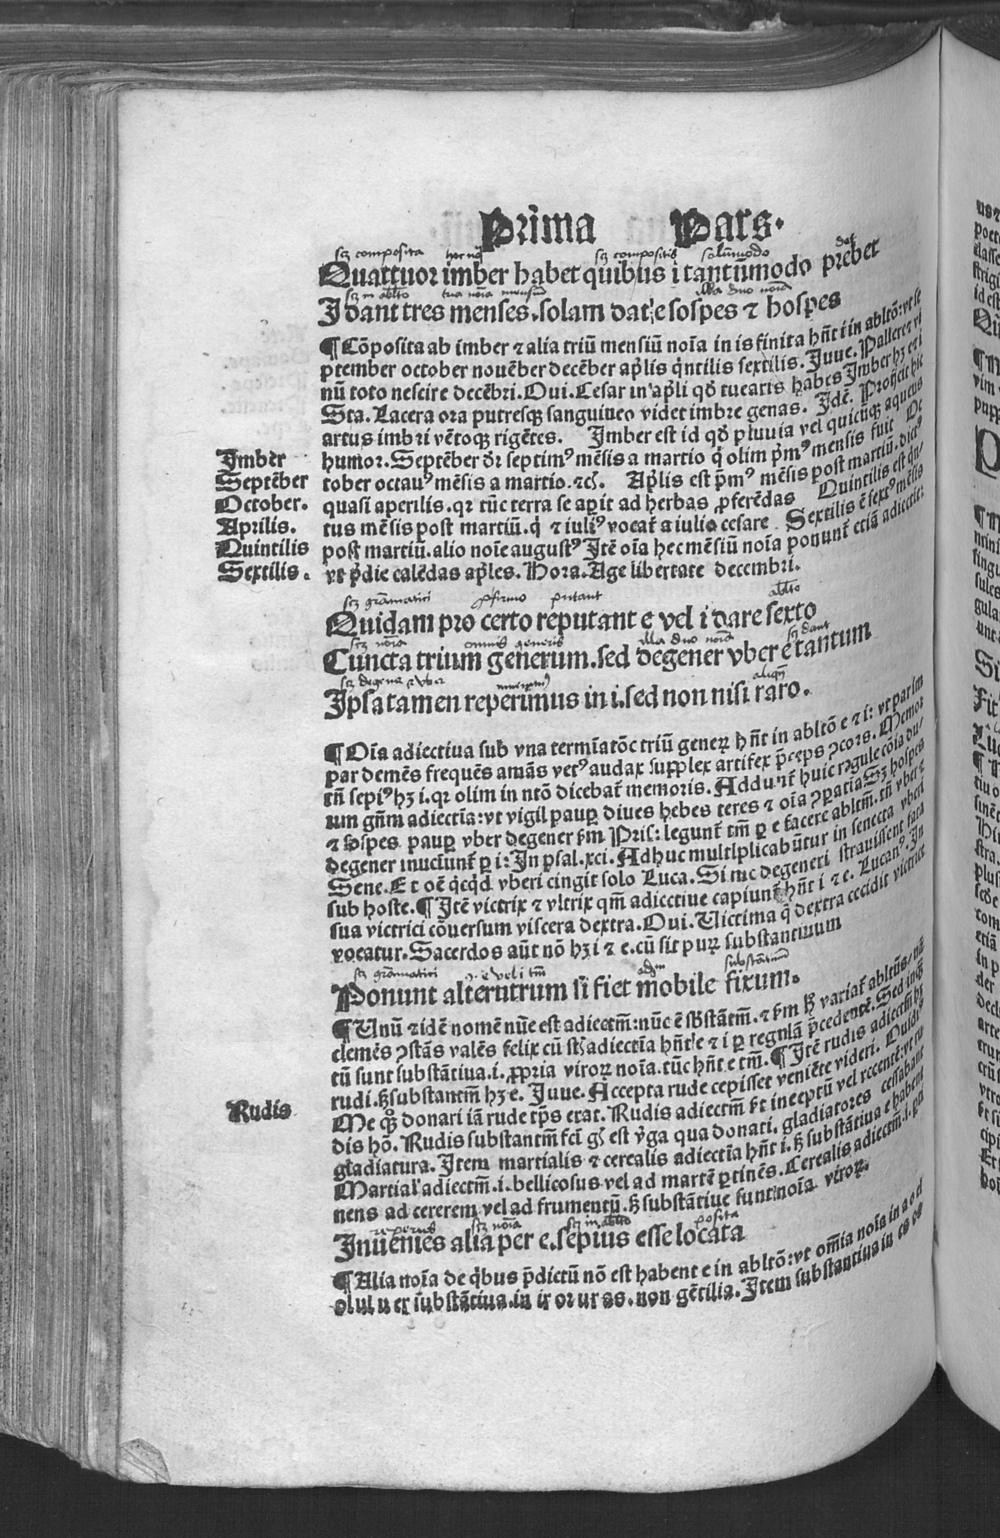 Prima Pars.
scʒ composita scʒ compositis dat
Quattuor imber habet quibus i tantūmodo prebet
Idant tres menses.solam dat:e sospes ⁊ hospes
¶ Cōposita ab imber ⁊ alia triū mensiū noīa in is finita hn̄t i in abltō: vt se
ptember october nouēber decēber apl̄is qn̄tilis sextilis. Juue. Pallere ⁊ vi
nū toto nescire decēbri. Oui. Cesar in apl̄i qd̄ tuearis habes Imber hʒ e ⁊ i
Sta. Lacera ora putresqʒ sanguineo videt imbre genas. Idē. Proijcit hic
artus imbri vētoqʒ rigētes. Imber est id qd̄ pluuia vel quicūqʒ aqueus
Imber
humor. Septēber dr̄ septimꝰ mēsis a martio q̄ olim pm̄ꝰ mensis fuit Oc
Septēber
tober octauꝰ mēsis a martio.⁊cͭ. Apl̄is est pm̄ꝰ mēsis post martiū.dictꝰ
October.
quasi aperilis.qr tūc terra se apit ad herbas ꝓferēdas Quintilis est qn̄
Aprilis.
tus mēsis post martiū. q̄ ⁊ iuliꝰ vocat̄ a iulio cesare. Sextilis ē sextꝰ mēsis
Quintilis
post martiū.alio noīe augustꝰ Itē oīa hec mēsiū noīa ponunt̄ etiā adiectiē.
Sextilis.
vt pdie calēdas apl̄es. Hora. Age libertate decembri.
scʒ grāmatici ꝓfirmo putant ablt̄o
Quidam pro certo reputant e vel i dare sexto
scʒ noīa omnis generis illa duo noīa scʒ dant
Cuncta trium generum.sed degener vber e tantum
scʒ degener ⁊ vber
Ipsa tamen reperimus in i.sed non nisi raro.
¶ Oīa adiectiua sub vna termīatōe triū generꝝ hn̄t in abltō e ⁊ i: vt par im
par demēs frequēs amās vetꝰ audax supplex artifex pceps ꝯcors. Memor
tn̄ sepiꝰ hʒ i.qr olim in ntō dicebat̄ memoris. Addunt̄ huic regule cōia du/
um gn̄m adiectīa: vt vigil paup diues hebes teres ⁊ oīa ꝯparatīa Sʒ hospes
⁊ sospes paup vber degener fm Pris: legunt̄ tm̄ p e facere abltm̄. tn̄ vber ⁊
degener inueiunt̄ p i: In psal.xci. Adhuc multiplicabūtur in senecta vberi
Sene. Et oē qcqd vberi cingit solo Luca. Si me degeneri strauissent fata
sub hoste. ¶ Itē victrix ⁊ vltrix qm̄ adiectiue capiunt̄ hn̄t i ⁊ e. Lucanꝰ. In
sua victrici cōuersum viscera dextra. Oui. Uictima q̄ dextra cecidit victrice
vocatur. Sacerdos aūt nō hʒ i ⁊ e.cū sit purꝝ substantiuum
scʒ grāmatici substātiuū
Ponunt alterutrum si fiet mobile fixum.
¶ Unū ⁊ idē nomē nūc est adiectm̄: nūc ē sbstātm̄.
clemēs ꝯstās valēs felix cū st adiectīa hn̄t e ⁊ i p regulā pcedentē. Sed inqn̄
tū sunt substātiua.i. ꝓpria virorꝝ noīa.tūc hn̄t e tm̄. ¶ Itē rudis adiectm̄ hʒ
rudi.sʒ substantm̄ hʒ e. Juue. Accepta rude cepisset veniēte videri. Ouidiꝰ
Rudis
Me qʒ donari iā rude tps erat. Rudis adiectm̄ st ineeptū vel recentē: vt ru
dis hō. Rudis substantm̄ fei gn̄ est v̄ga qua donati. gladiatores cessabant
gladiatura. Item martialis ⁊ cerealis adiectīa hn̄t i. sʒ substātiua e habent
Martial' adiectm̄.i.bellicosus vel ad martē ptinēs. Cerealis adiectm̄.i.pti
nens ad cererem vel ad frumentū.sʒ substātiue sunt noīa virorꝝ.
scʒ noīa scʒ in ablt̄o posita
Inuenies alia per e.sepius esse locata
¶ Alia noīa de qbus pdictū nō est habent e in abltō: vt omīa noīa in a o d
ol ul u ex substātiua.in ir or ur as.non gētilia. Item substantiua in es os